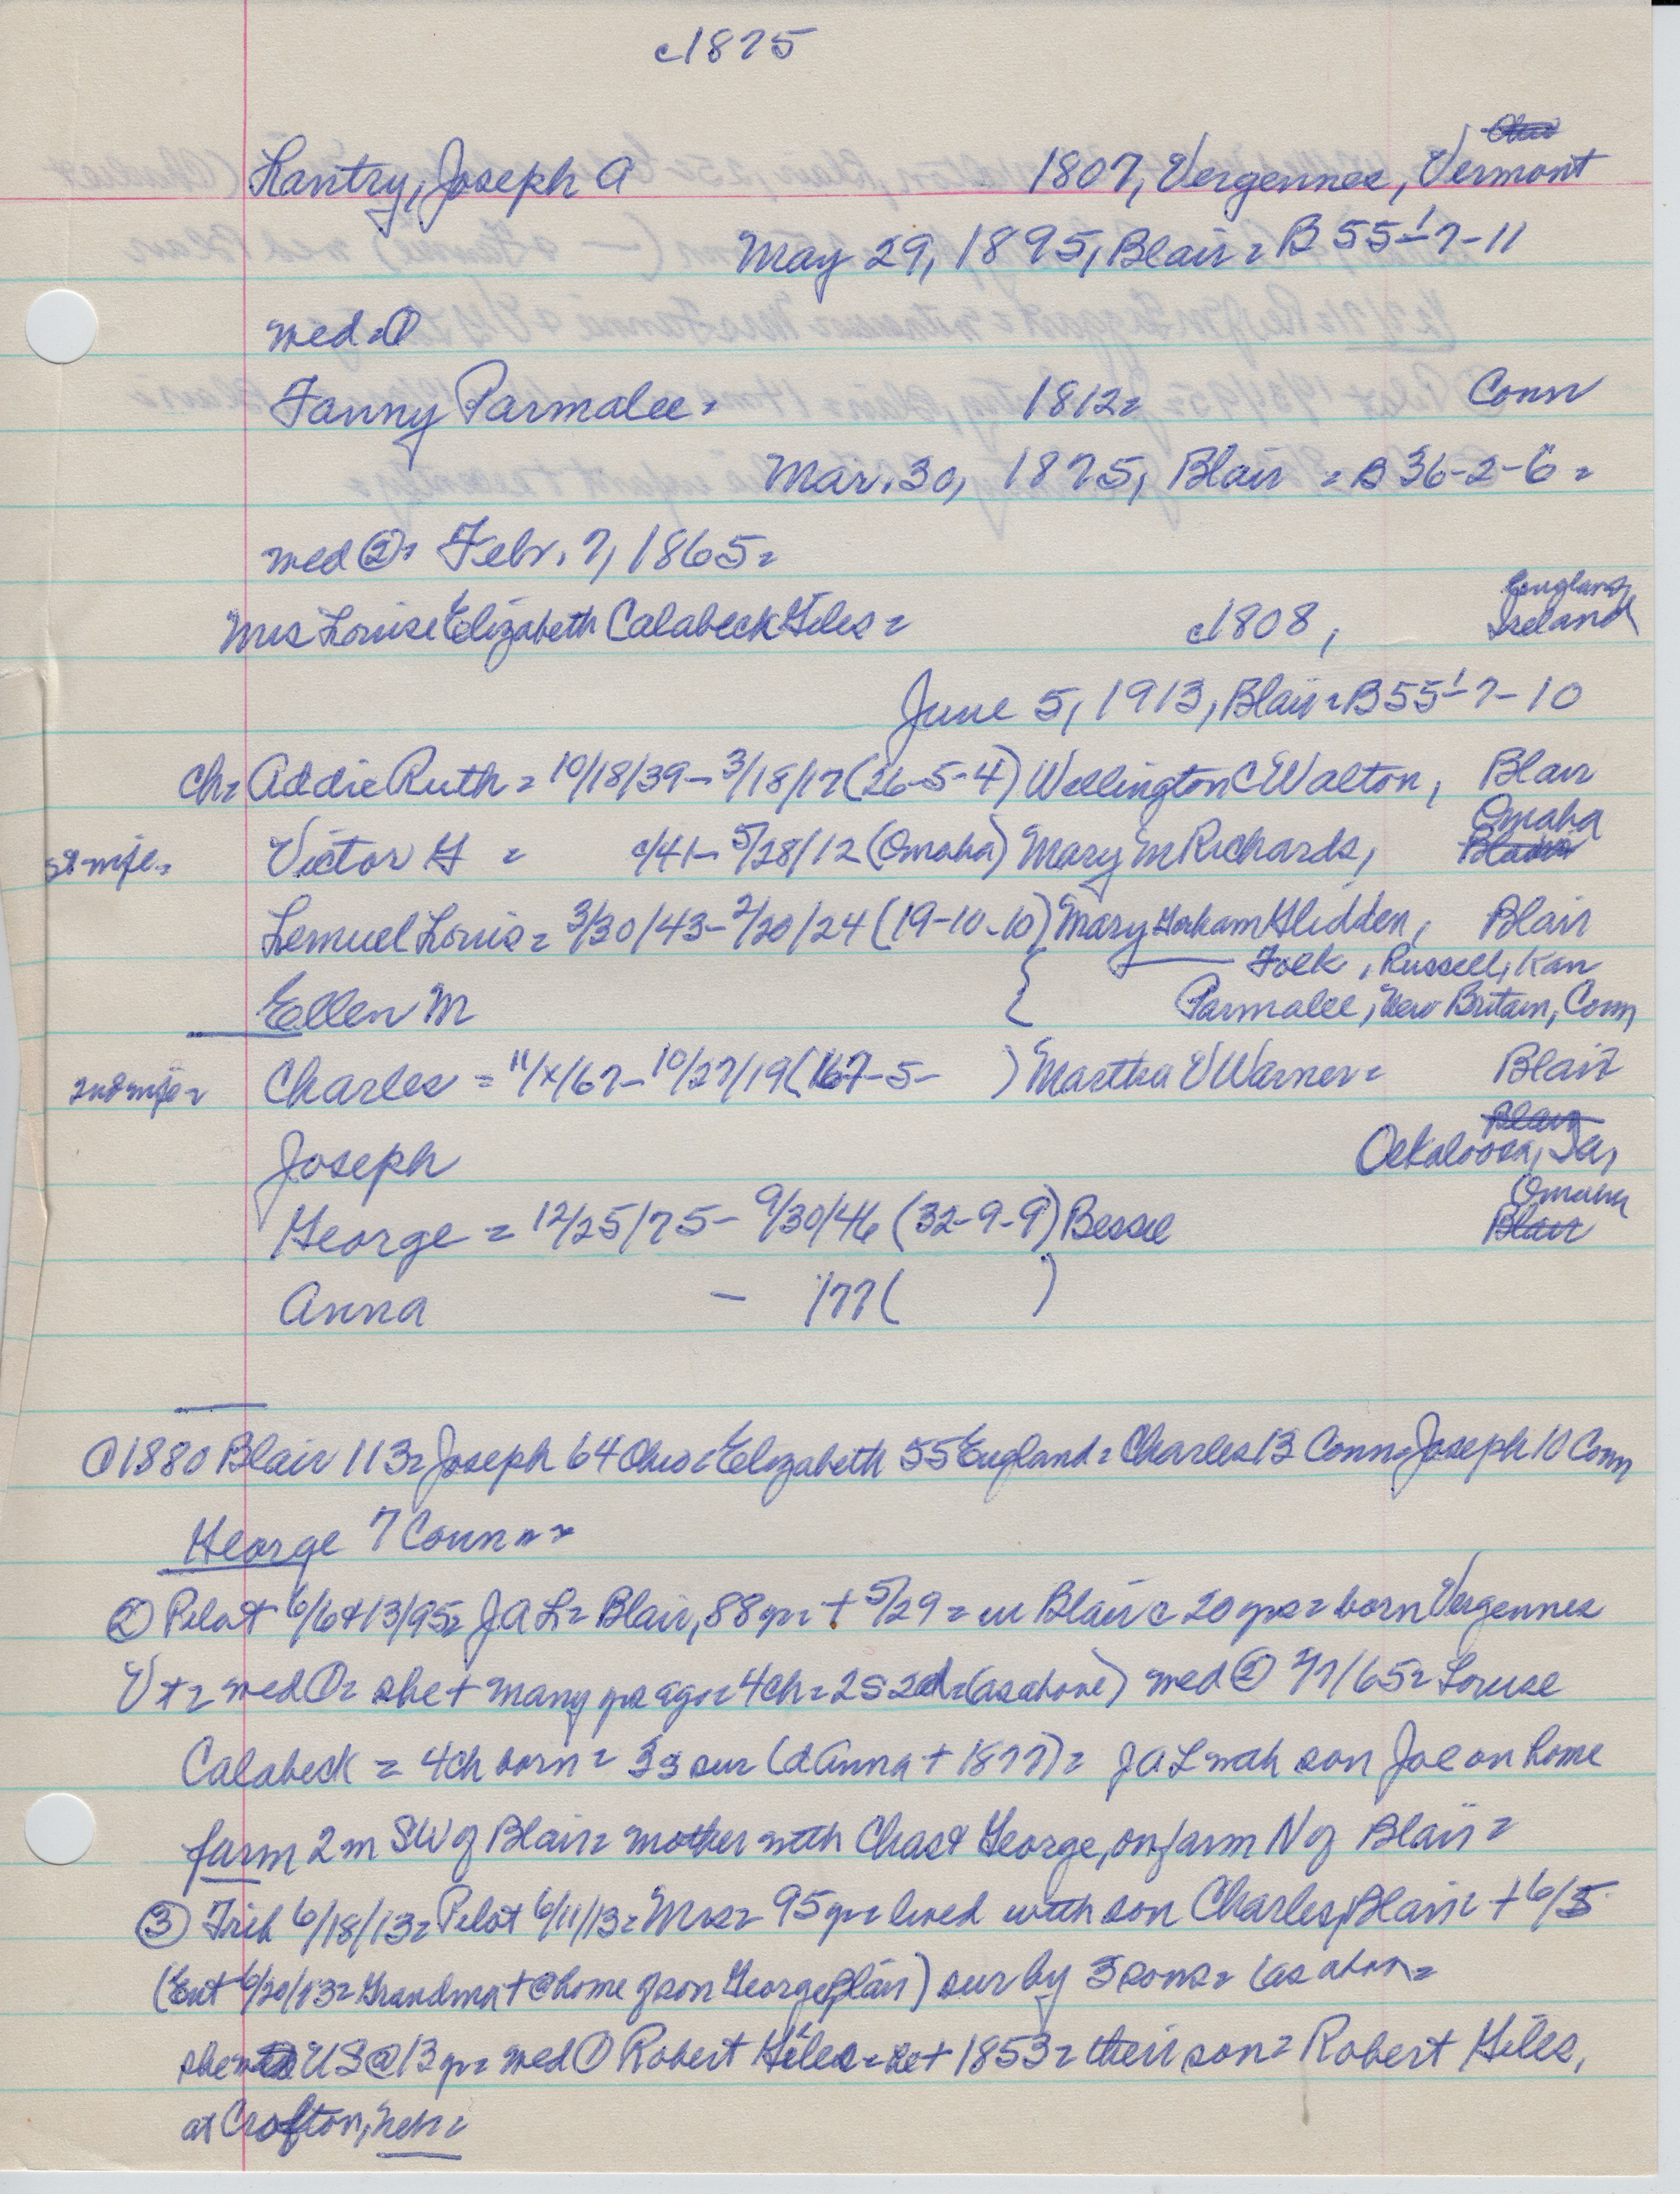 c1875
Lantry, Joseph A 1807, Vergennes, Vermont
May 29, 1895, Blair = B 55-1-7-11
med = ①
Fanny Parmalee = 1812 = Conn
Mar. 30, 1875, Blair = B 36-2-6 =
med ② = Febr. 7, 1865 =
England
Mrs Louise Elizabeth Calabeck Giles = c1808, Ireland
June 5, 1913, Blair = B 55-1-7-10
Ch = Addie Ruth = 10/18/39 - 3/18/17 (26-5-4) Wellington C Walton, Blair
Omaha
1st wife = Victor G = c/41 - 5/28/12 (Omaha) Mary M Richards, Blair
Lemuel Louis = 3/30/43 - 2/20/24 (19-10-10) Mary Gorham Glidden, Blair
Folk, Russell, Kan
Ellen M { Parmalee, New Britain, Conn
2nd wife = Charles = 11/x/67 - 10/27/19 (167-5- ) Martha V Warner = Blair
Blair
Joseph Oskaloosa, Ia,
Omaha
George = 12/25/75 - 9/30/46 (32-9-9) Bessie Blair
Anna - /77 ( )
① 1880 Blair 113 = Joseph 64 Ohio = Elizabeth 55 England = Charles 13 Conn = Joseph 10 Conn
George 7 Conn =
② Pilot 6/6 & 13/95 = J A L = Blair, 88 yr = + 5/29 = in Blair c 20 yrs = born Vergennes
Vt = med ① = she + many yrs ago = 4 ch = 2s 2d = (as above) med ② 2/7/65 = Louise
Calabeck = 4 ch born = 3s sur (d Anna + 1877) = J A L with son Joe on home
farm 2 m SW of Blair = mother with Chas & George, on farm N of Blair =
③ Trib 6/18/13 = Pilot 6/11/13 = Mrs = 95 yr = lived with son Charles, Blair = + 6/5
(Ent 6/20/13 = Grandma + @ home of son George, Blair) sur by 3 sons = (as above =
she to US @ 13 yr = med ① Robert Giles = he + 1853 = their son = Robert Giles,
at Crofton, Neb =